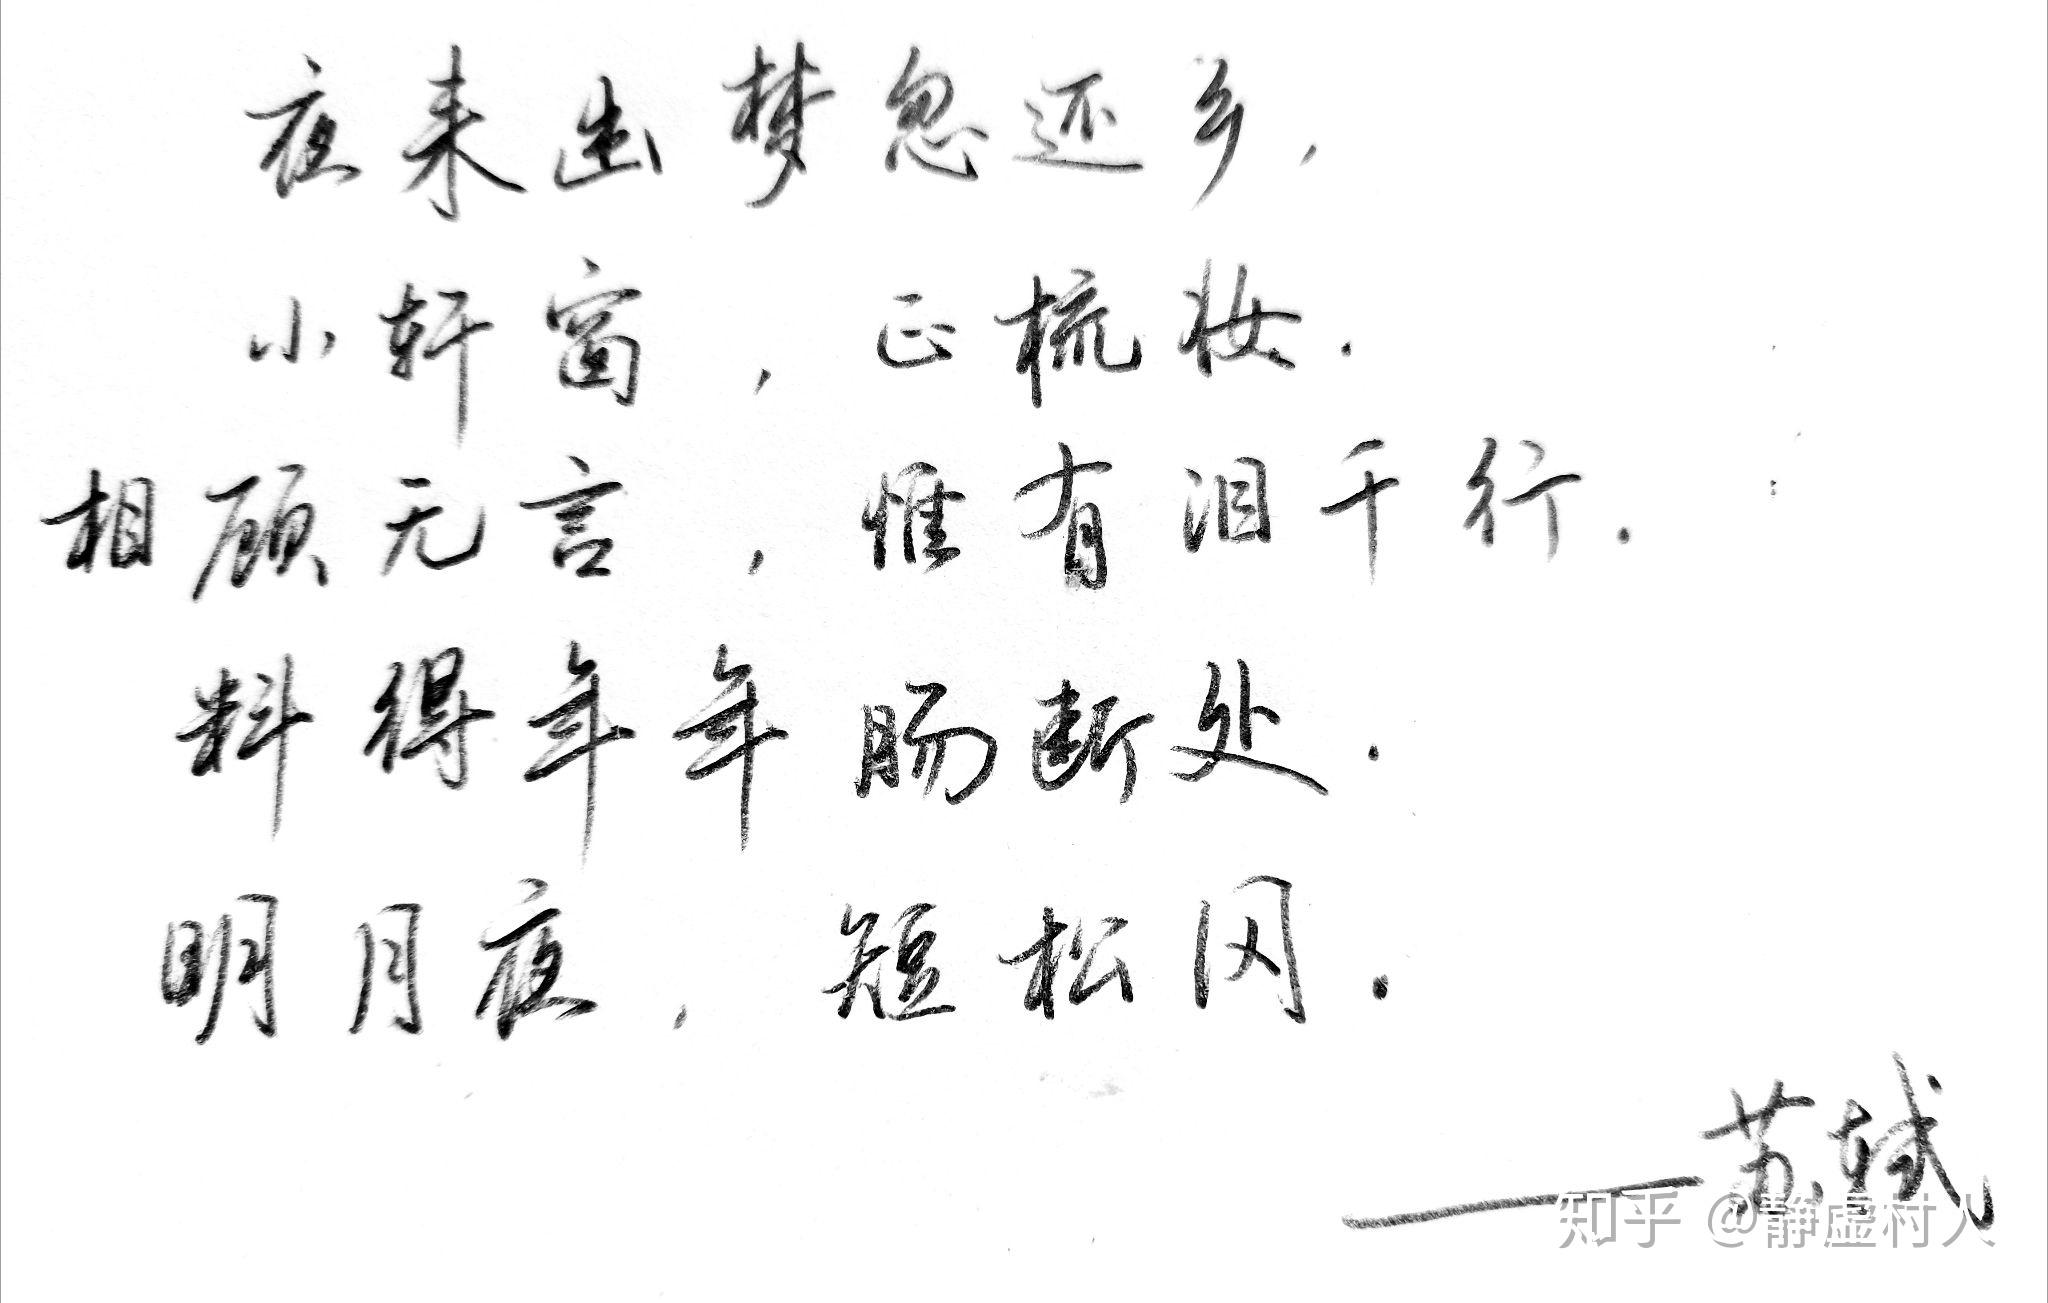 夜来幽梦忽还乡，
小轩窗，正梳妆.
相顾无言，惟有泪千行.
料得年年肠断处.
明月夜，短松冈.
——苏轼
知乎 @静虚村人